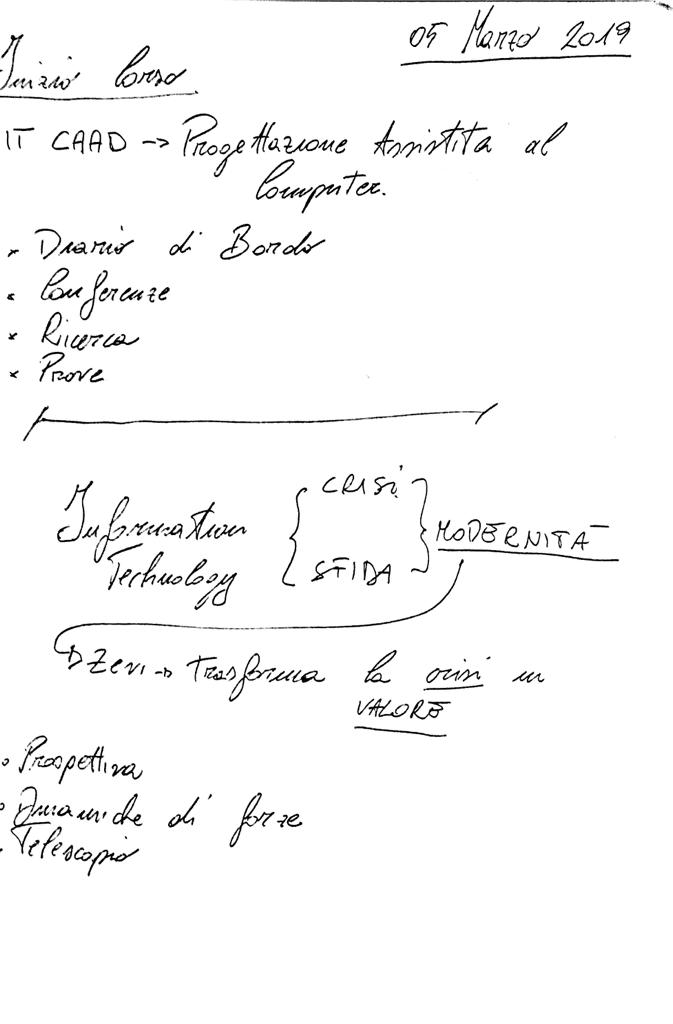 05 Marzo 2019
Inizio Corso
IT CAAD -> Progettazione Assistita al
Computer.
× Diario di Bordo
× Conferenze
× Ricerca
× Prove
Information
Technology
{ CRISI
SFIDA } MODERNITÀ
Zevi -> Trasforma la crisi in
VALORE
• Prospettiva
• Dinamiche di forze
• Telescopio